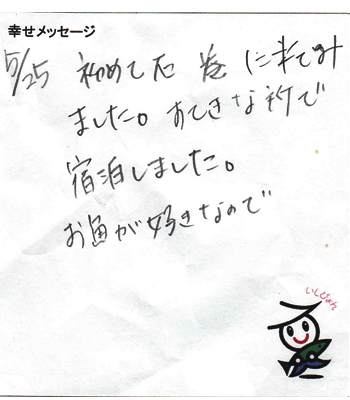 幸せメッセージ
5/25 初めて石巻に来てみ
ました。すてきな所で
宿泊しました。
お魚が好きなので
いしぴょん